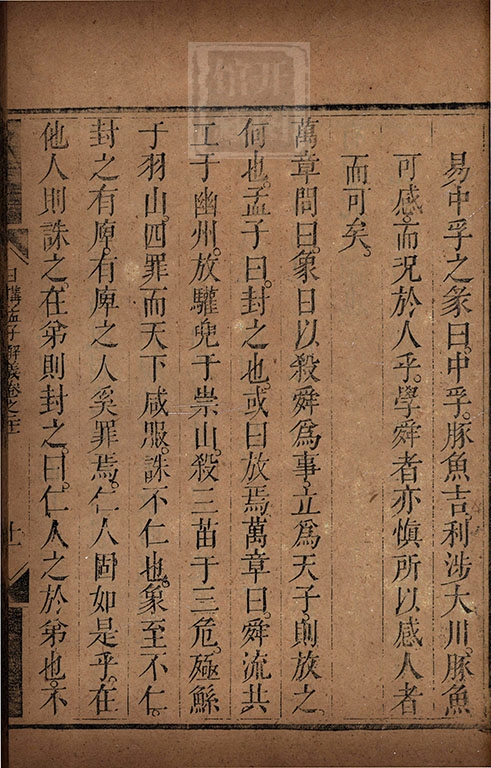 易中孚之彖曰中孚豚魚吉利涉大川豚魚
可感而況於人乎學舜者亦慎所以感人者
而可矣
萬章問曰象日以殺舜爲事立爲天子則放之
何也孟子曰封之也或曰放焉萬章曰舜流共
工于幽州放驩兜于崇山殺三苗于三危殛鯀
于羽山四罪而天下咸服誅不仁也象至不仁
封之有庳有庳之人奚罪焉仁人固如是乎在
他人則誅之在弟則封之曰仁人之於弟也不
日講孟子解義卷之
十一